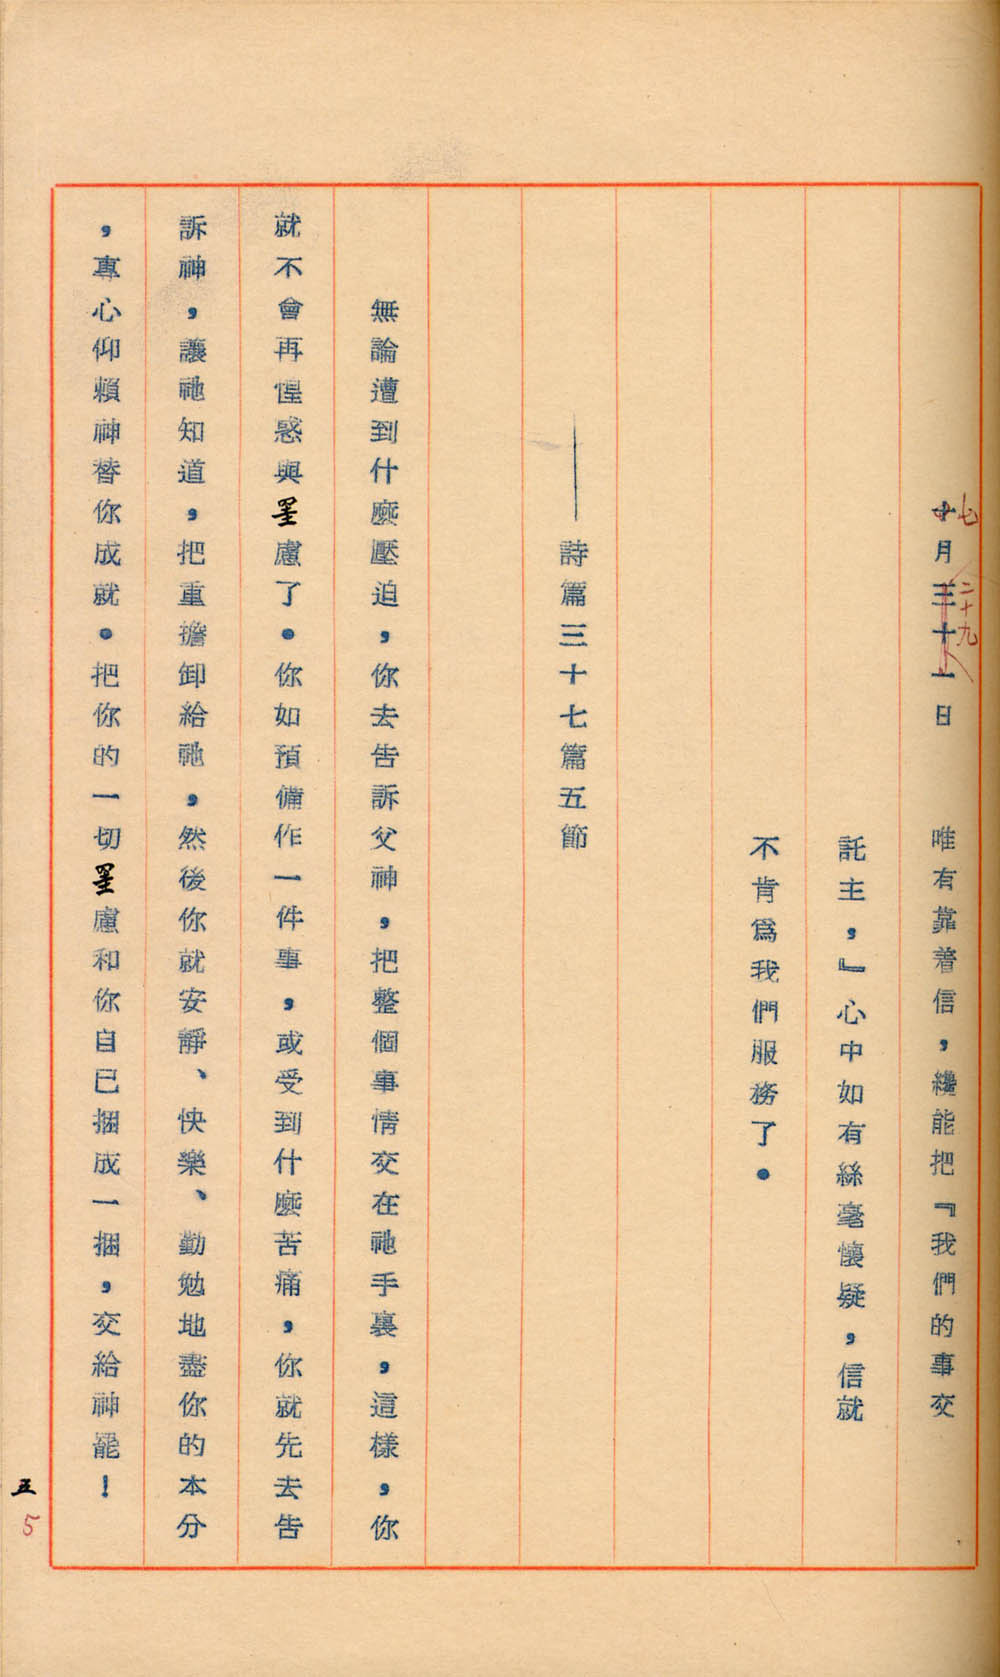 十月三十一日　唯有靠着信，纔能把『我們的事交
七
二十九
託主，』心中如有絲毫懷疑，信就
不肯為我們服務了。
——詩篇三十七篇五節
無論遭到什麼壓迫，你去告訴父神，把整個事情交在祂手裏，這樣，你
就不會再惶惑與罣慮了。你如預備作一件事，或受到什麼苦痛，你就先去告
訴神，讓祂知道，把重擔卸給祂，然後你就安靜、快樂、勤勉地盡你的本分
，專心仰賴神替你成就。把你的一切罣慮和你自己捆成一捆，交給神罷！
五
5